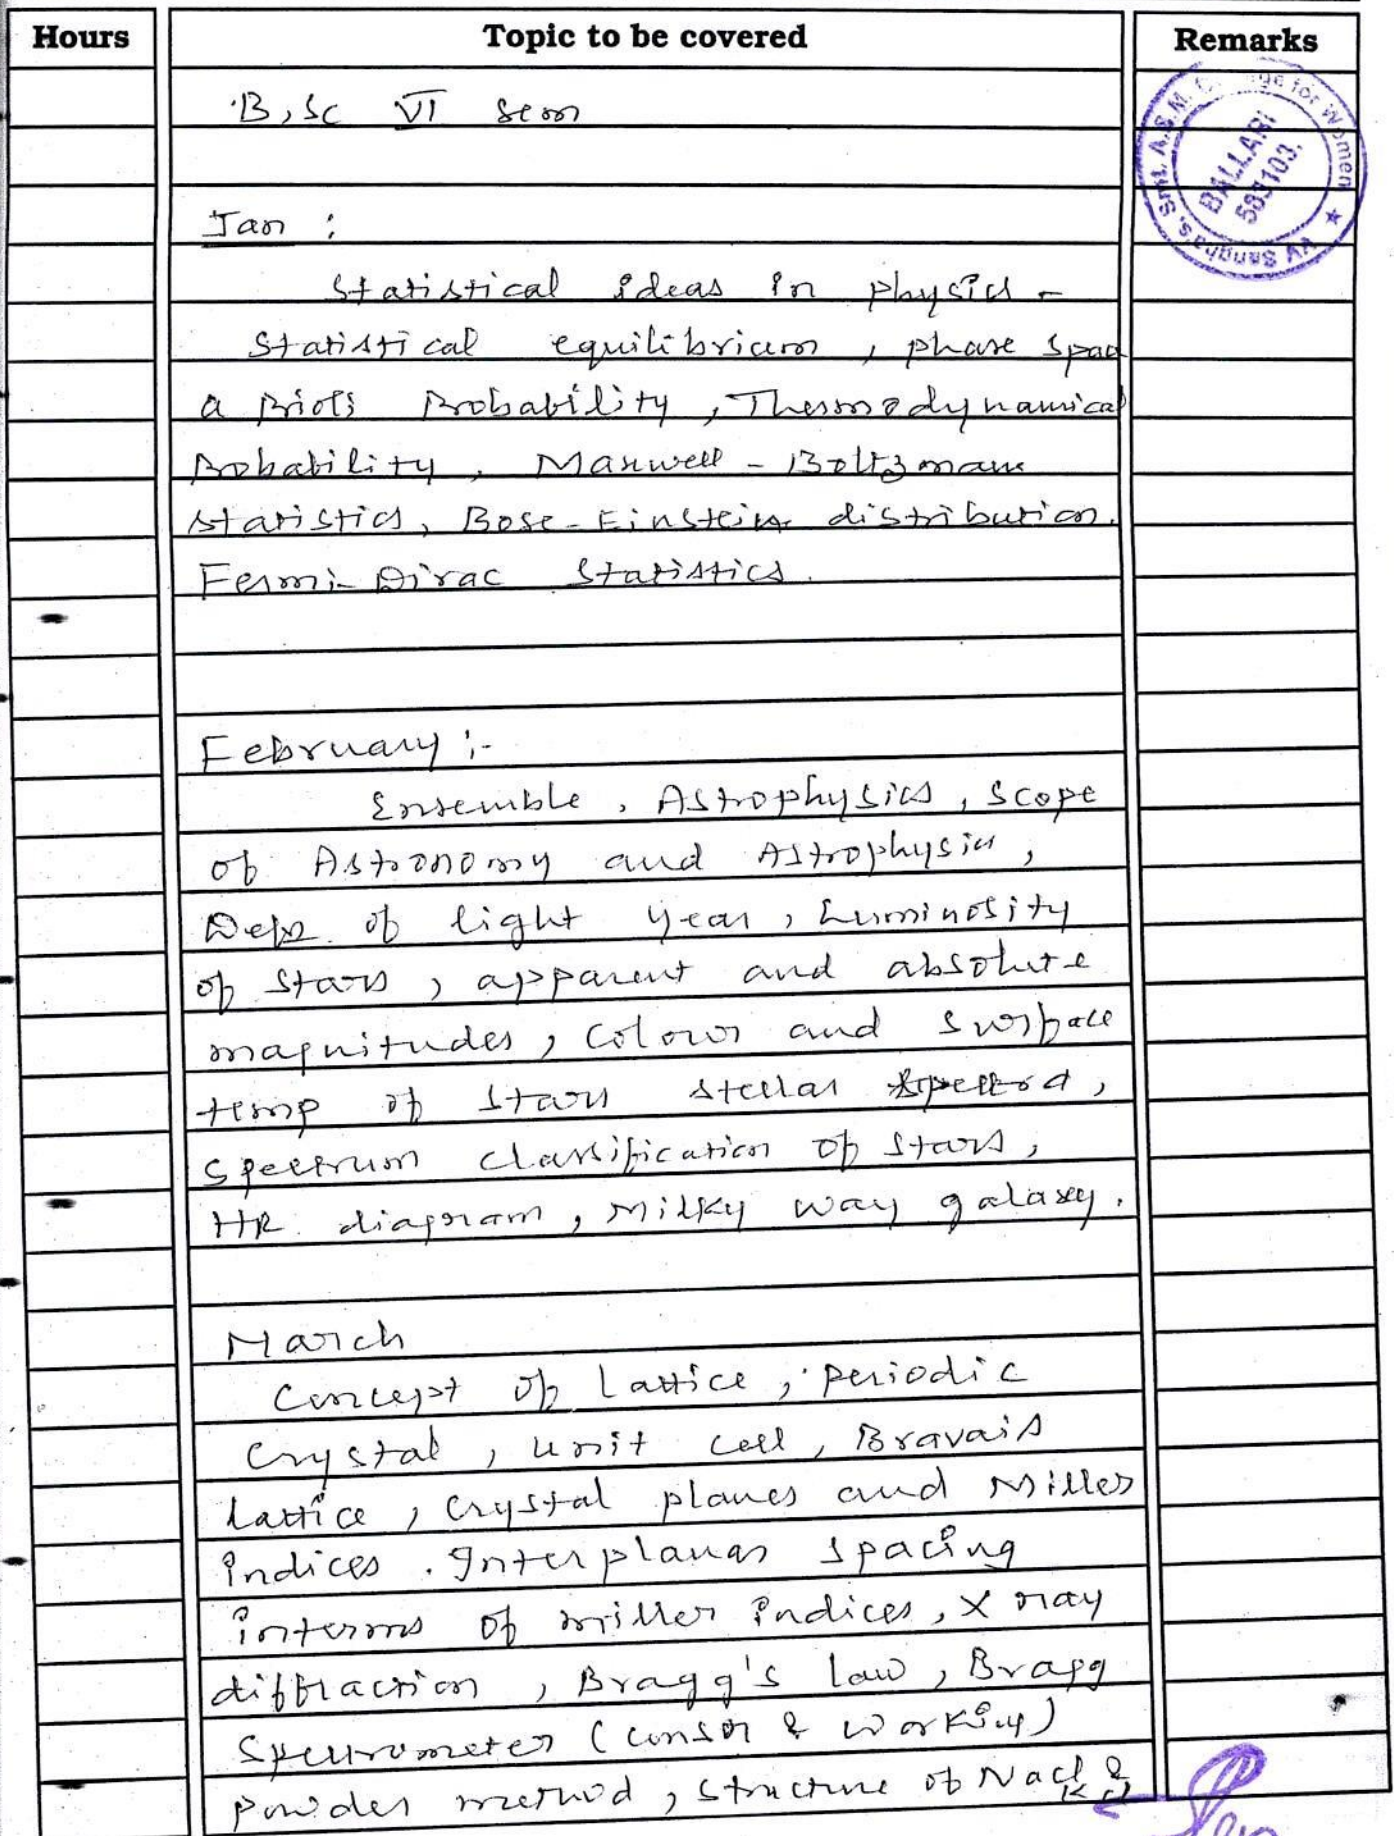 Hours
Topic to be covered
Remarks
B,Sc VI sem
Smt. A.S.M. College for Women ★
VV Sangha's,
BALLARI
583103.
Jan :
Statistical ideas in physics -
Statistical equilibrium , phase spac
a priori Probability , Thermodynamical
Probability , Maxwell - Boltzmann
statistics, Bose-Einstein distribution.
Fermi-Dirac Statistics.
February :-
Ensemble , Astrophysics , Scope
of Astronomy and Astrophysics ,
Defn. of light year , Luminosity
of stars , apparent and absolute
magnitudes , Colour and Surface
temp of stars stellar spectra ,
Spectrum classification of stars ,
HR. diagram , Milky way galaxy .
March
Concept of Lattice , periodic
Crystal , unit cell , Bravais
Lattice , Crystal planes and Miller
indices . Interplanar spacing
interms of miller indices , X ray
diffraction , Bragg's law , Bragg
Spectrometer ( Constr & working )
Powder method , Structure of Nacl &
Kcl